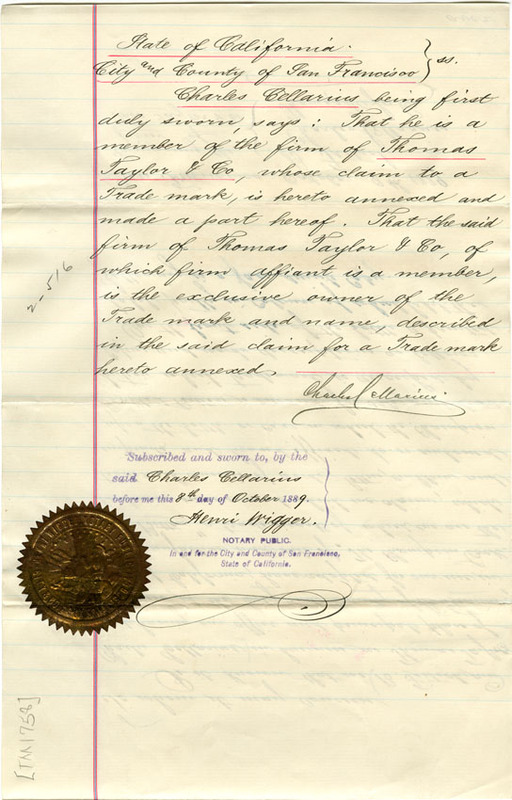 State of California.
City and County of San Francisco } ss.
Charles Cellarius being first
duly sworn, says: That he is a
member of the firm of Thomas
Taylor & Co, whose claim to a
Trade mark, is hereto annexed and
made a part hereof. That the said
firm of Thomas Taylor & Co, of
which firm affiant is a member,
is the exclusive owner of the
Trade mark and name, described
in the said claim for a Trade mark
hereto annexed.
Charles Cellarius
2-516
Subscribed and sworn to, by the
said Charles Cellarius
before me this 8th day of October 1889.
Henri Wigger.
NOTARY PUBLIC.
In and for the City and County of San Francisco,
State of California.
[TM 1758]